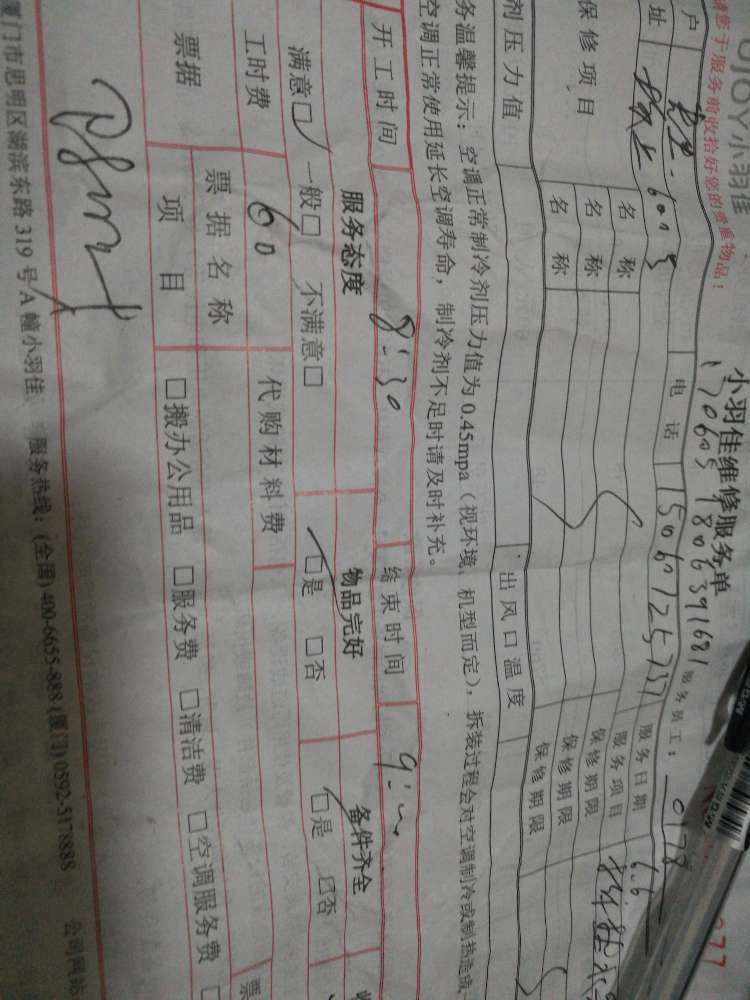 OJOY小羽佳
小羽佳维修服务单
请您于服务前收拾好您的贵重物品!
1706051806391681
服务员工: 0178
户
电话
服务日期 6.6
址
服务项目
保修项目
名称
保修期限
名称
保修期限
名称
保修期限
剂压力值
出风口温度
务温馨提示:空调正常制冷剂压力值为0.45mpa(视环境、机型而定),拆装过程会对空调制冷或制热造成
空调正常使用延长空调寿命,制冷剂不足时请及时补充。
开工时间 8:30 结束时间
服务态度 物品完好 备件齐全
满意□ 一般□ 不满意□ □是 □否 □是 □否
工时费 60 代购材料费
票据 票据名称
项目 □搬办公用品 □服务费 □清洁费 □空调服务费
厦门市思明区湖滨东路319号A幢小羽佳 服务热线:(全国)400-6655-888 (厦门)0592-5178888 公司网站